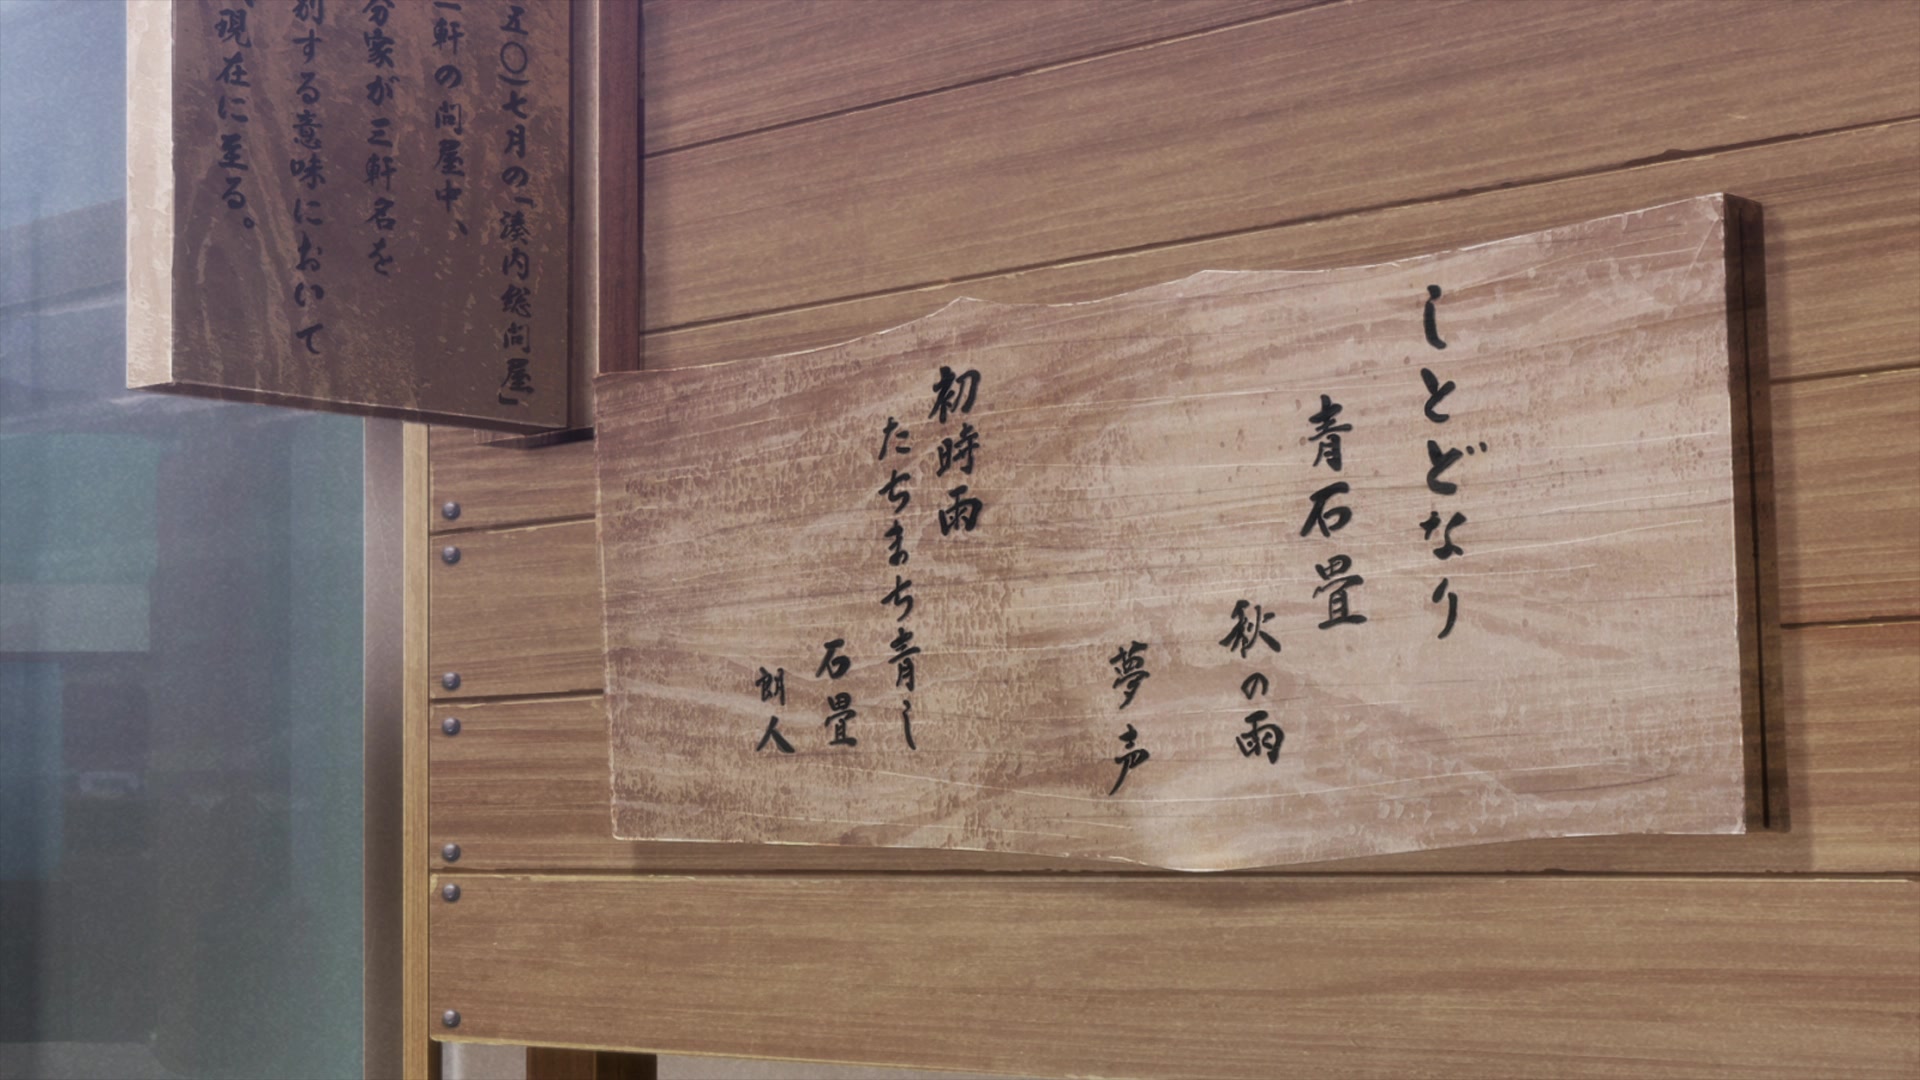 しとどなり
青石畳
秋の雨
夢声
初時雨
たちまち青し
石畳
朗人
五〇)七月の「湊内総問屋」
一軒の問屋中、
分家が三軒名を
別する意味において
、現在に至る。